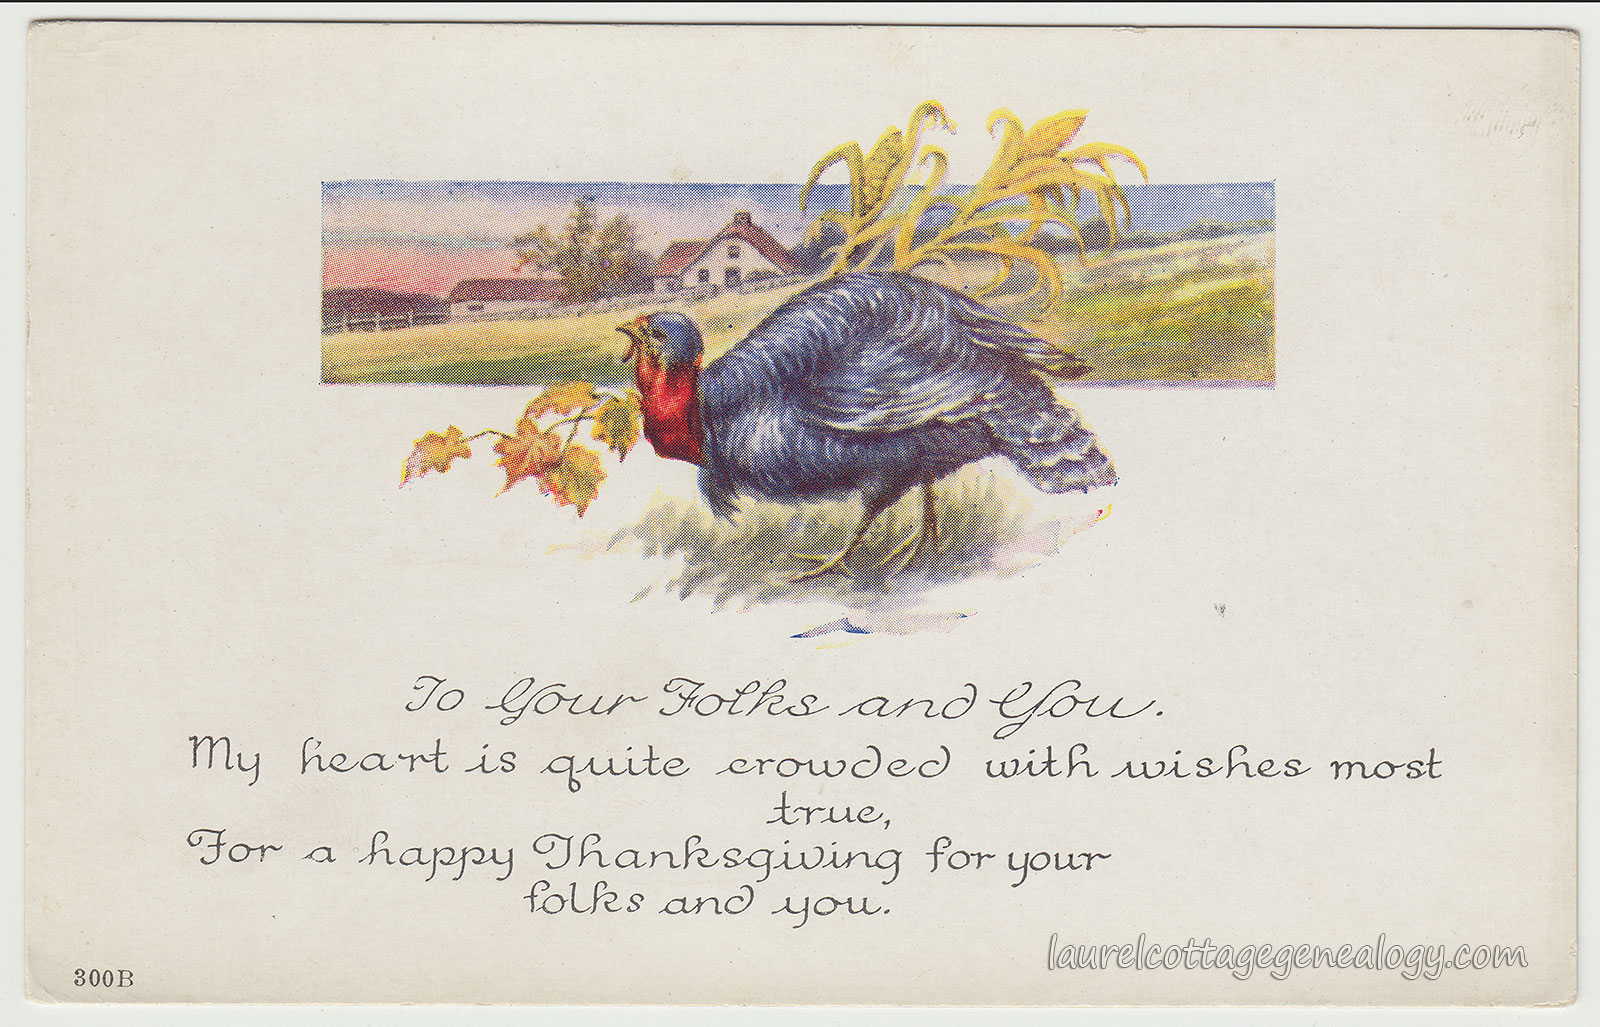 To Your Folks and You.
My heart is quite crowded with wishes most
true,
For a happy Thanksgiving for your
folks and you.
laurelcottagegenealogy.com
300B